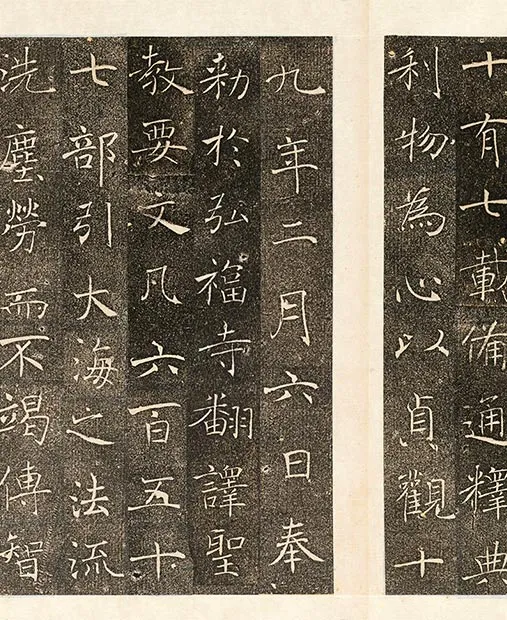 十有七載備通釋典
利物為心以貞觀十
九年二月六日奉
勅於弘福寺翻譯聖
教要文凡六百五十
七部引大海之法流
洗塵勞而不竭傳智